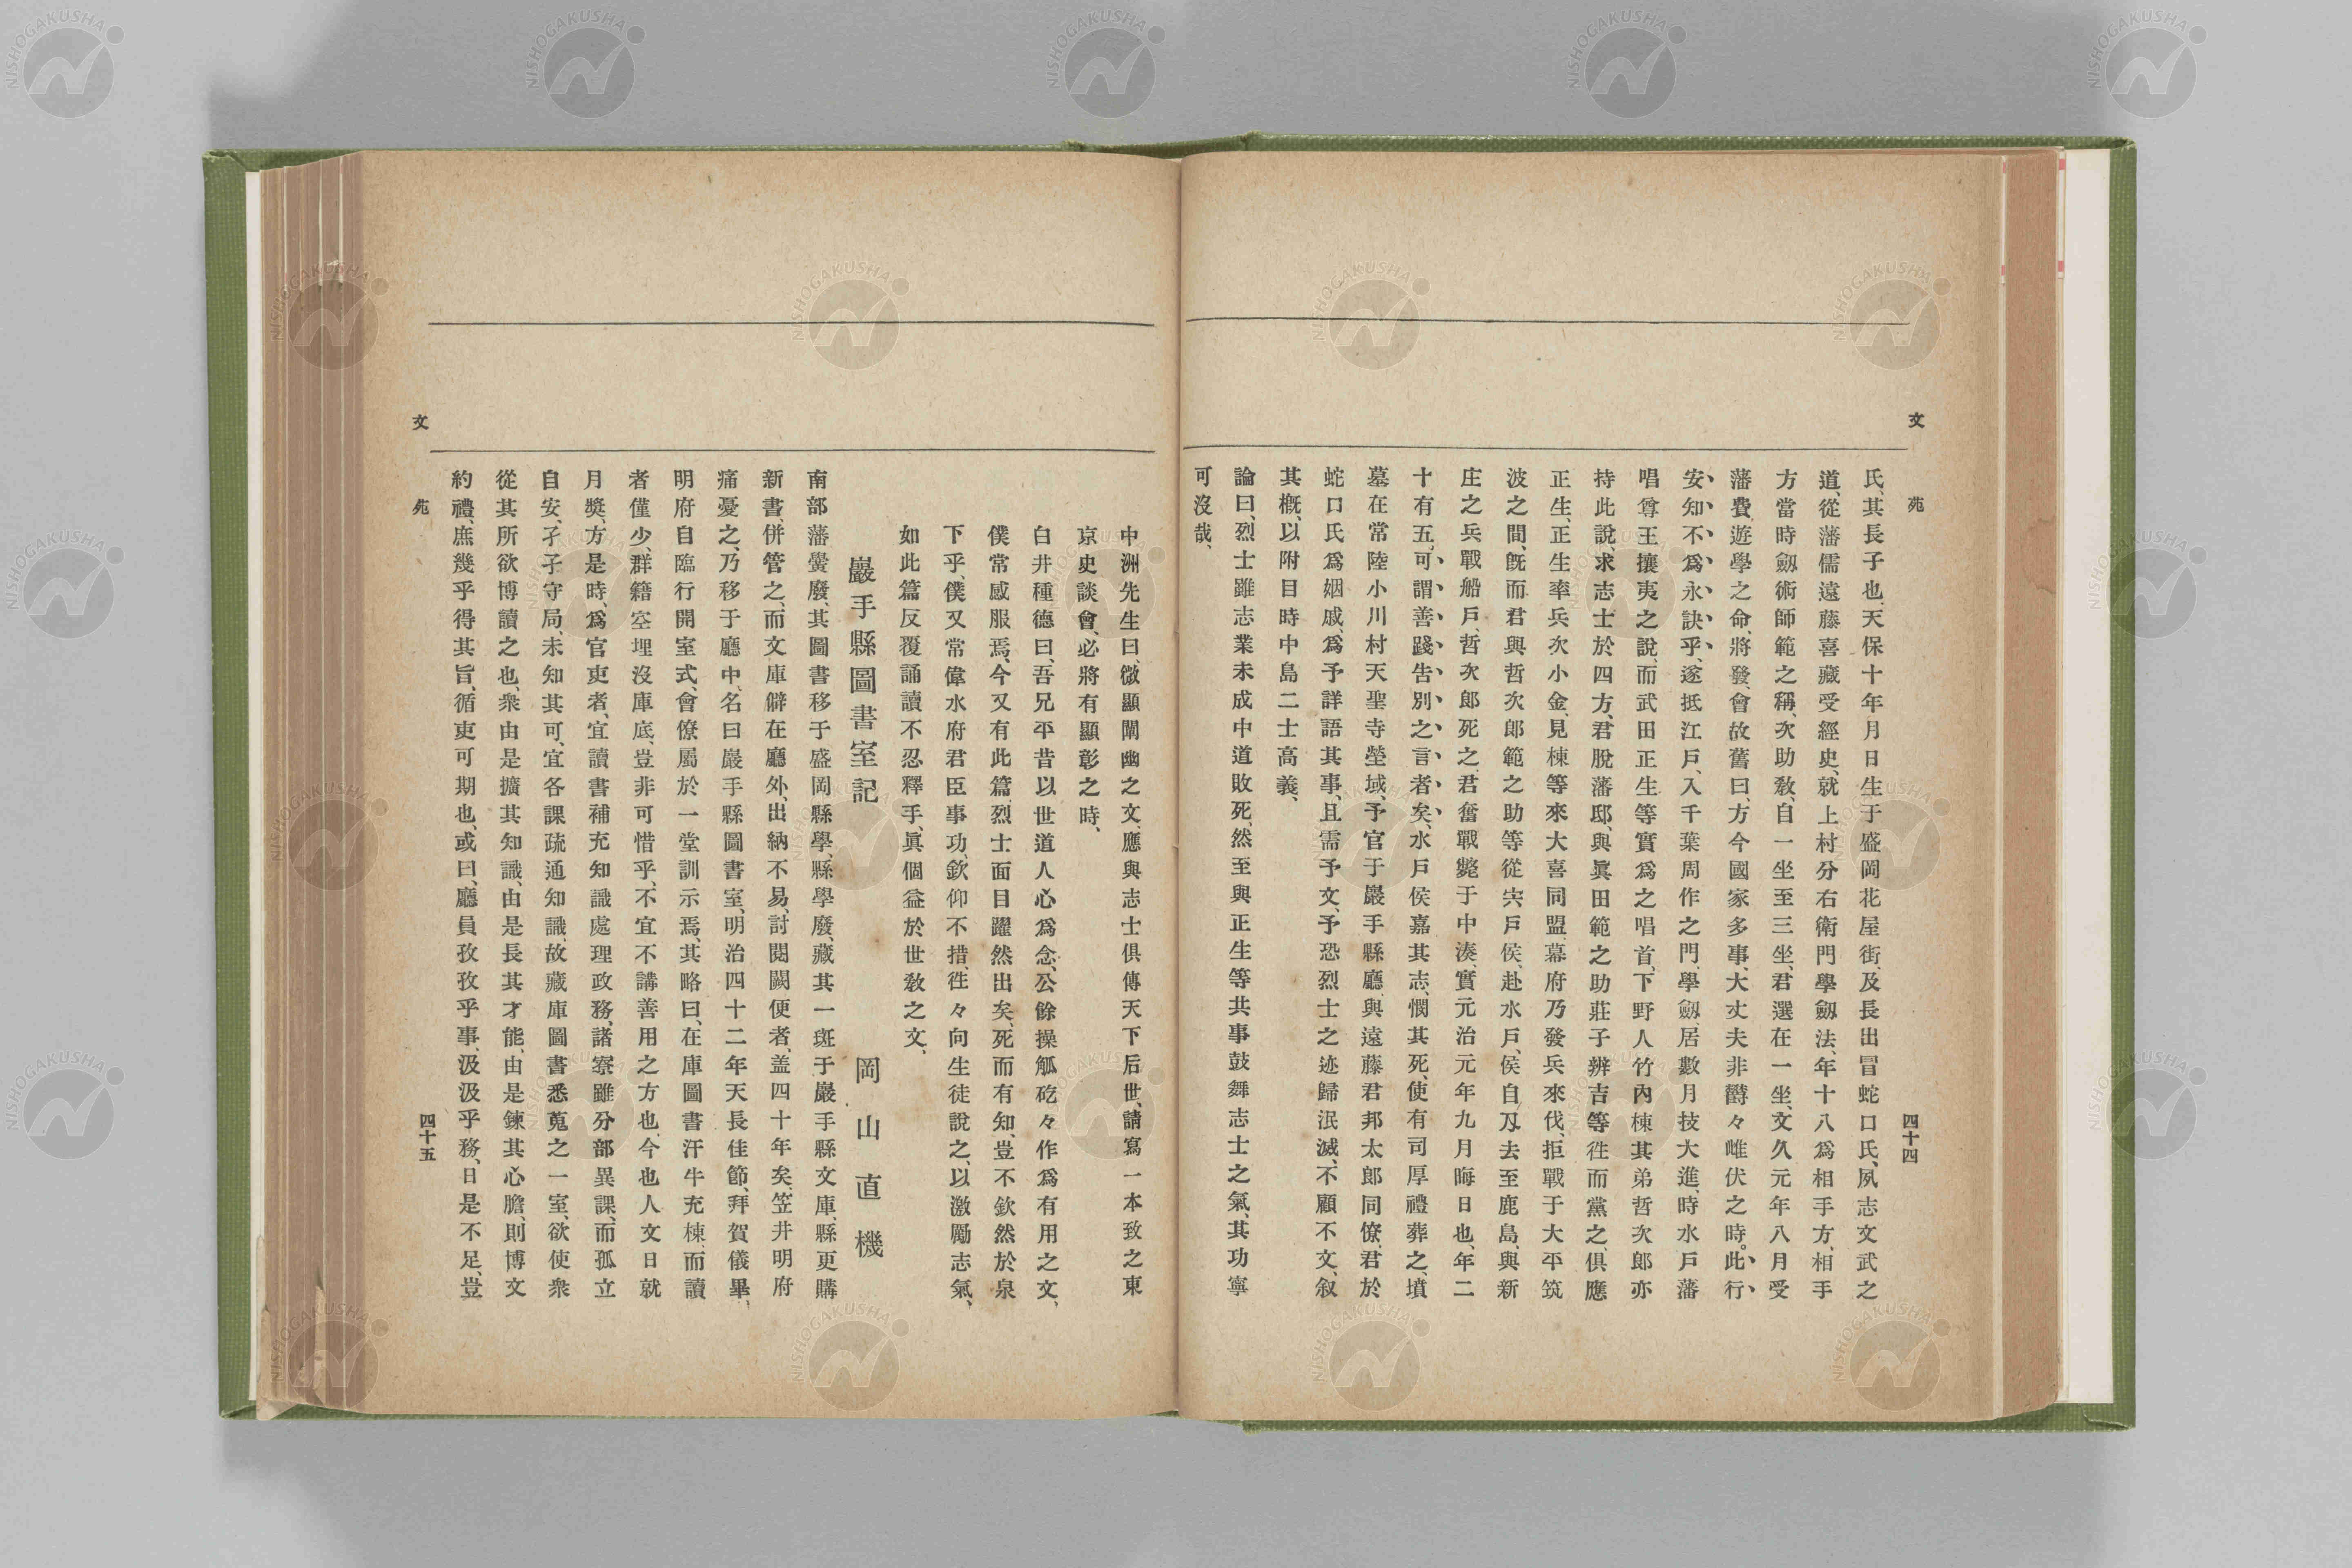 文苑
四十四
氏、其長子也、天保十年月日生于盛岡花屋街、及長出冒蛇口氏、夙志文武之
道、從藩儒遠藤喜藏受經史、就上村分右衛門學劔法、年十八爲相手方、相手
方當時劔術師範之稱、次助敎、自一坐至三坐、君選在一坐、文久元年八月受
藩費遊學之命、將發、會故舊曰、方今國家多事、大丈夫非欝々雌伏之時。此行
安知不爲永訣乎、遂抵江戶、入千葉周作之門、學劔、居數月技大進、時水戶藩
唱尊王攘夷之說、而武田正生等實爲之唱首、下野人竹內棟其弟哲次郎亦
持此說、求志士於四方、君脫藩邸、與眞田範之助莊子辨吉等徃而黨之、俱應
正生、正生率兵次小金、見棟等來大喜同盟、幕府乃發兵來伐、拒戰于大平筑
波之間、旣而君與哲次郎範之助等從宍戶侯、赴水戶、侯自刄去至鹿島、與新
庄之兵戰船戶、哲次郎死之、君奮戰斃于中湊、實元治元年九月晦日也、年二
十有五、可謂善踐告別之言者矣、水戶侯嘉其志、憫其死、使有司厚禮葬之、墳
墓在常陸小川村天聖寺塋域、予官于巖手縣廳、與遠藤君邦太郎同僚、君於
蛇口氏爲姻戚、爲予詳語其事、且需予文、予恐烈士之迹歸泯滅、不顧不文、叙
其槪、以附目時中島二士高義、
論曰、烈士雖志業未成中道敗死、然至與正生等共事鼓舞志士之氣、其功寧
可沒哉、
中洲先生曰、微顯闡幽之文、應與志士俱傳天下后世、請寫一本致之東
京史談會、必將有顯彰之時、
白井種德曰、吾兄平昔以世道人心爲念、公餘操觚矻々作爲有用之文、
僕常感服焉、今又有此篇、烈士面目躍然出矣、死而有知、豈不欽然於泉
下乎、僕又常偉水府君臣事功、欽仰不措、徃々向生徒說之、以激勵志氣、
如此篇反覆誦讀不忍釋手、眞個益於世敎之文、
巖手縣圖書室記
岡山直機
南部藩黌廢、其圖書移于盛岡縣學、縣學廢、藏其一斑于巖手縣文庫、縣更購
新書、併管之、而文庫僻在廳外、出納不易、討閱闕便者、盖四十年矣、笠井明府
痛憂之、乃移于廳中、名曰巖手縣圖書室、明治四十二年天長佳節、拜賀儀畢、
明府自臨行開室式、會僚屬於一堂訓示焉、其略曰、在庫圖書汗牛充棟、而讀
者僅少、群籍空埋沒庫底、豈非可惜乎、不宜不講善用之方也、今也人文日就
月奬、方是時、爲官吏者、宜讀書補充知識處理政務、諸寮雖分部異課、而孤立
自安、孑孑守局、未知其可、宜各課疏通知識、故藏庫圖書悉蒐之一室、欲使衆
從其所欲博讀之也、衆由是擴其知識、由是長其才能、由是鍊其心膽、則博文
約禮、庶幾乎得其旨、循吏可期也、或曰、廳員孜孜乎事、汲汲乎務、日是不足、豈
文苑
四十五